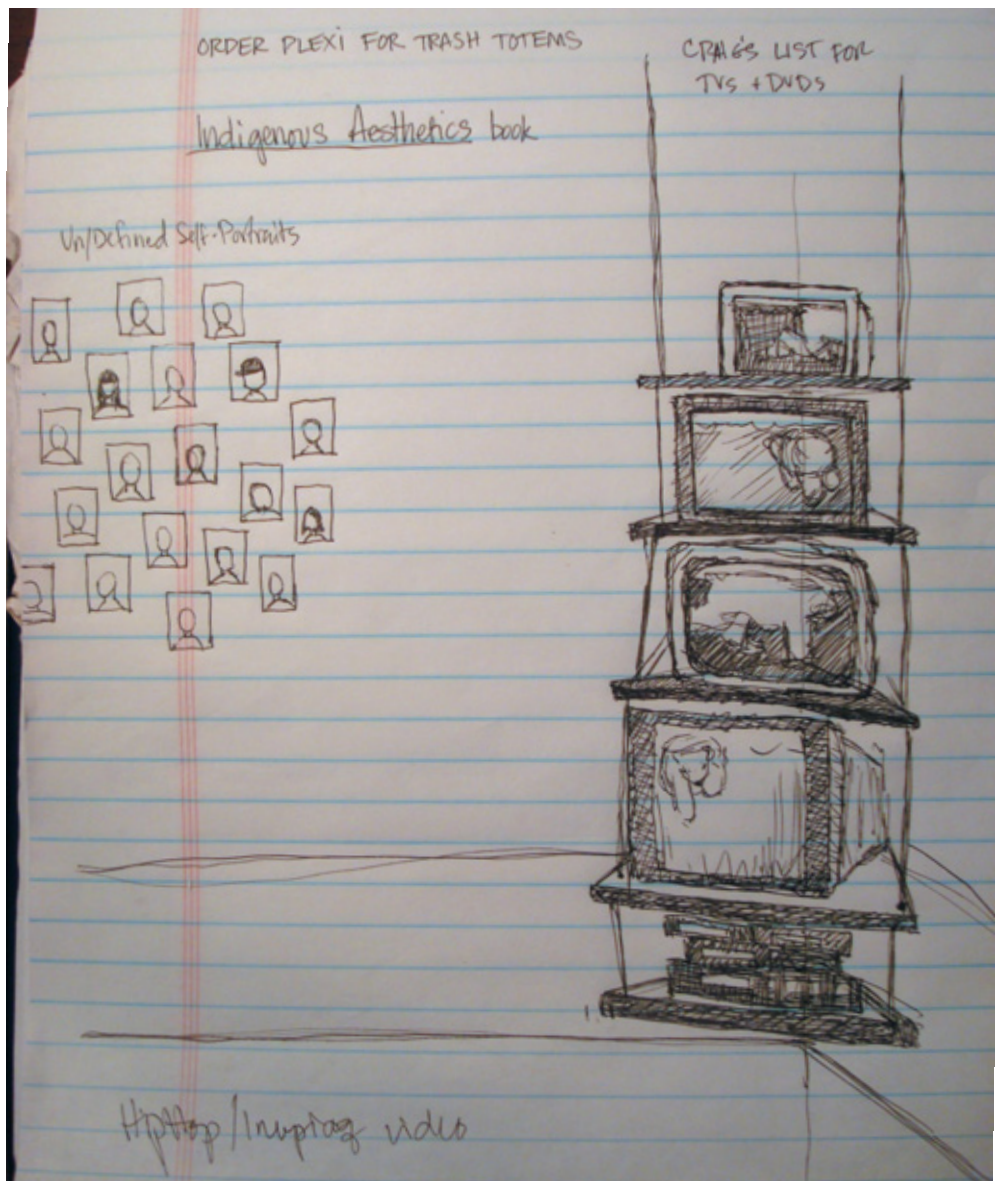 ORDER PLEXI FOR TRASH TOTEMS
CRAIG'S LIST FOR
TVS + DVDS
Indigenous Aesthetics book
Un/Defined Self-Portraits
HipHop/Inupiaq video